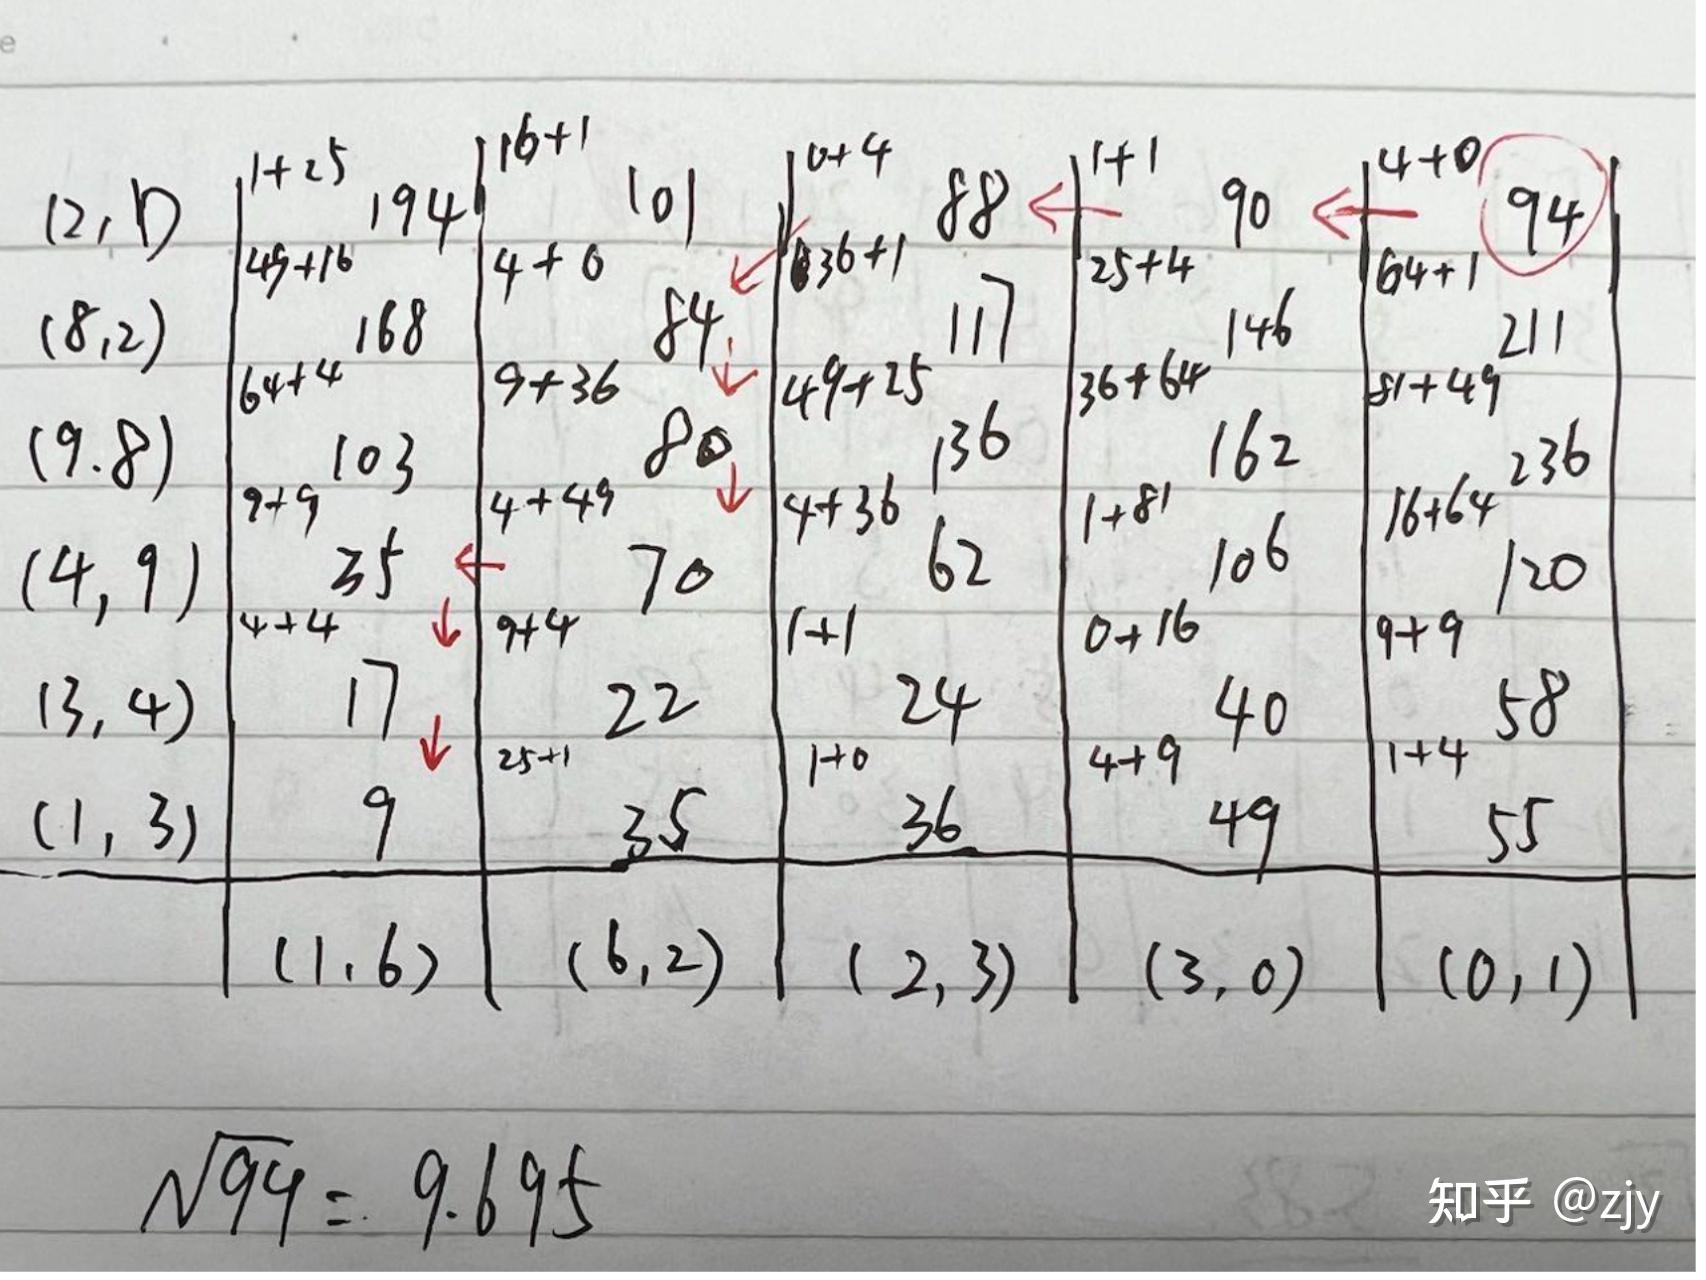 e
1+25 16+1 0+4 1+1 4+0
(2,1) 194 101 88 90 94
49+16 4+0 36+1 25+4 64+1
(8,2) 168 84 117 146 211
64+4 9+36 49+25 36+64 81+49
(9.8) 103 80 136 162 236
9+9 4+49 4+36 1+81 16+64
(4,9) 35 70 62 106 120
4+4 9+4 1+1 0+16 9+9
(3,4) 17 22 24 40 58
25+1 1+0 4+9 1+4
(1,3) 9 35 36 49 55
(1,6) (6,2) (2,3) (3,0) (0,1)
√94 = 9.695
知乎 @zjy